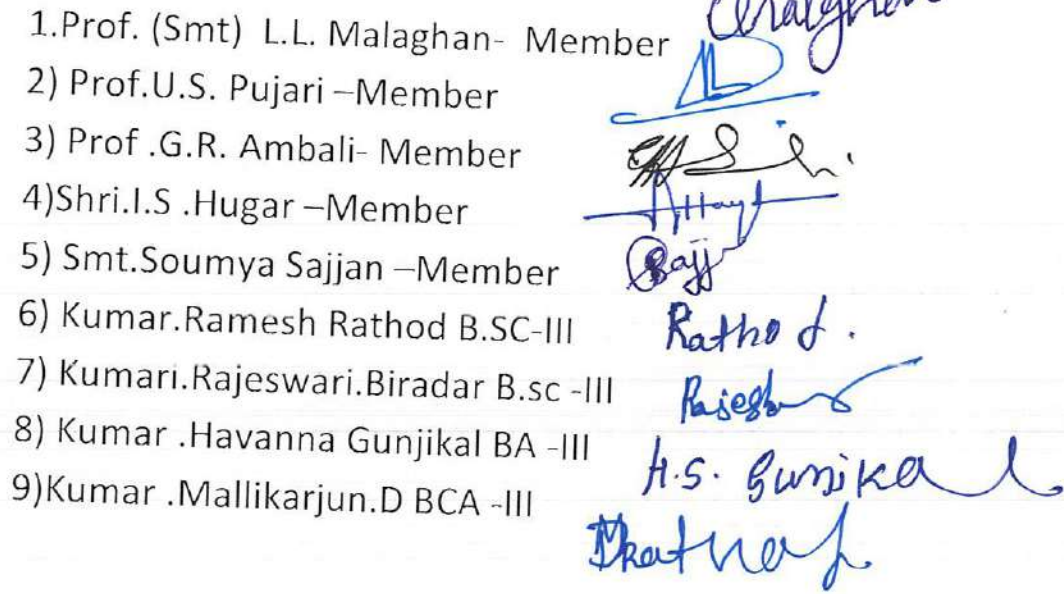 1.Prof. (Smt) L.L. Malaghan- Member
2) Prof.U.S. Pujari –Member
3) Prof .G.R. Ambali- Member
4)Shri.I.S .Hugar –Member
5) Smt.Soumya Sajjan –Member Sajj
6) Kumar.Ramesh Rathod B.SC-III Rathod.
7) Kumari.Rajeswari.Biradar B.sc -III
8) Kumar .Havanna Gunjikal BA -III H.S. Gunjikal
9)Kumar .Mallikarjun.D BCA -III